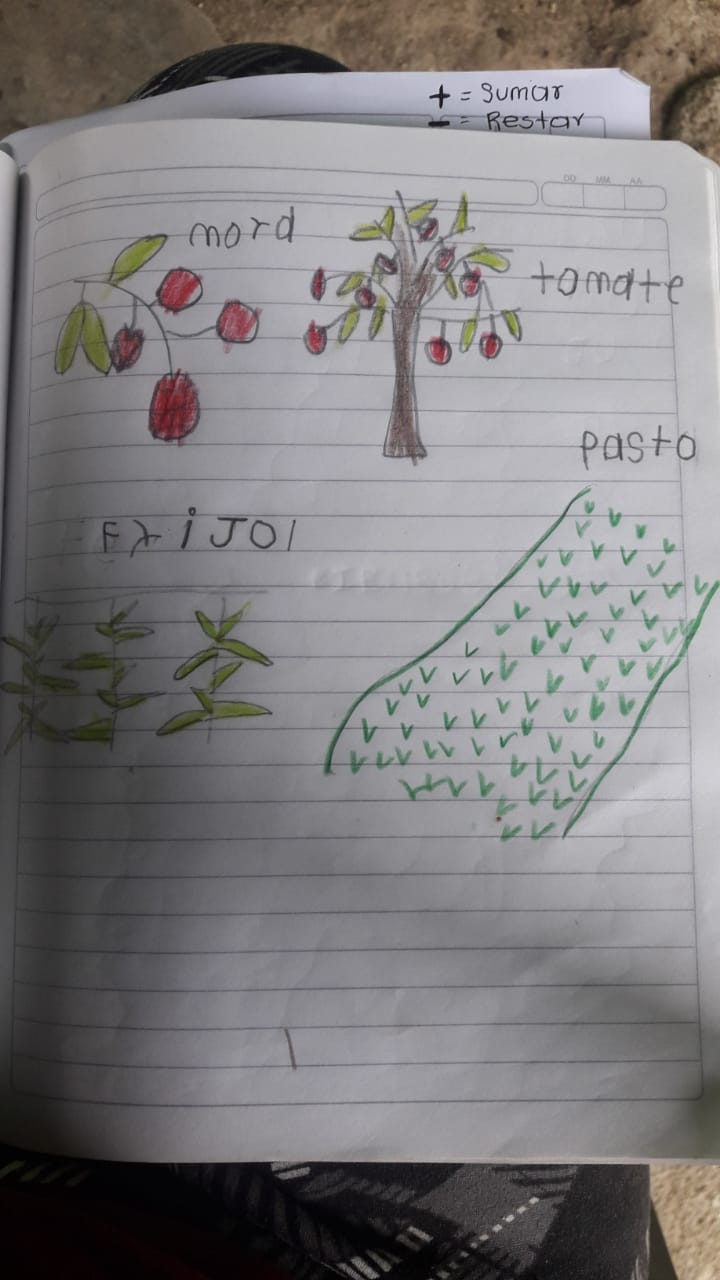 + = Sumar
- = Restar
DD MM AA
mora
tomate
pasto
FriJol